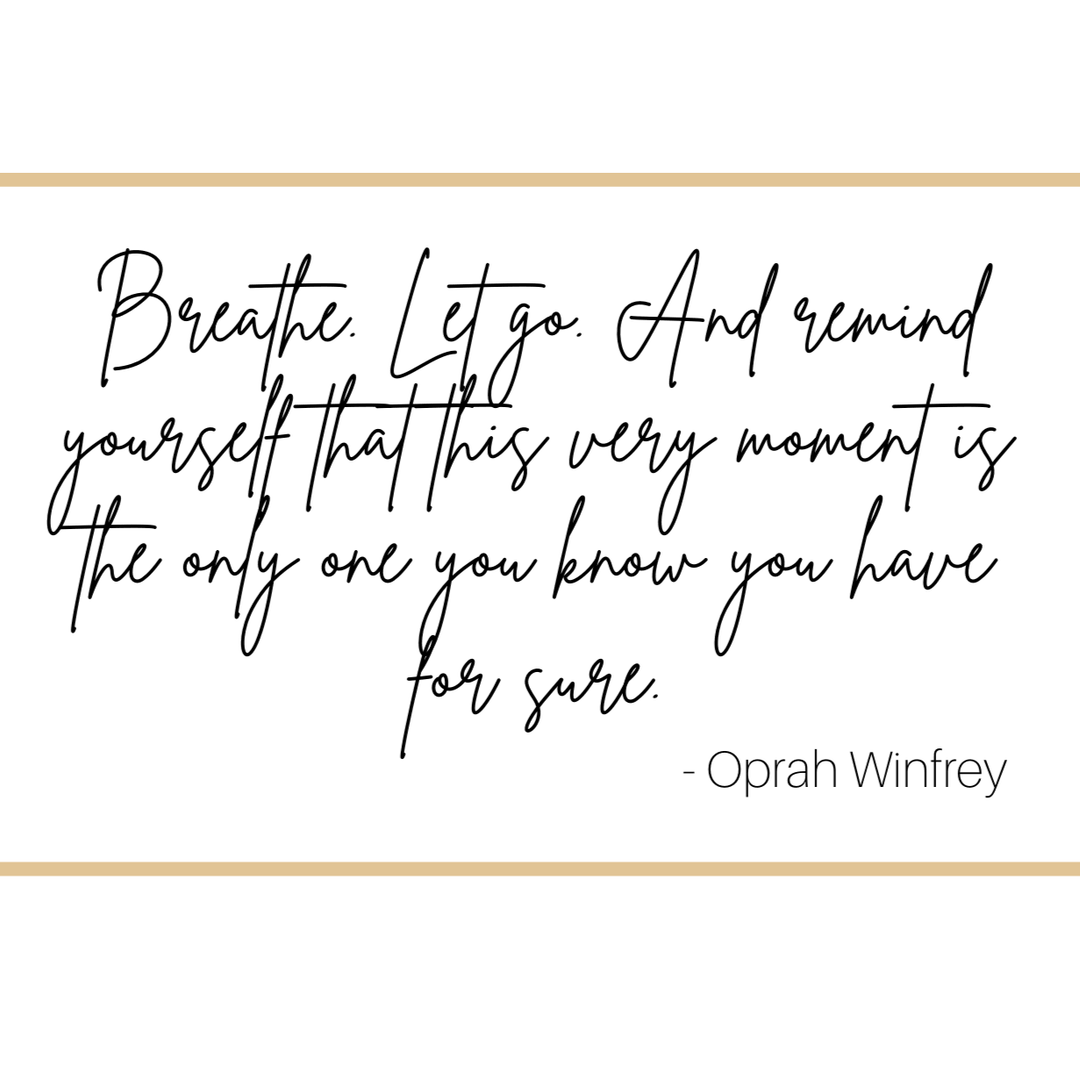 Breathe. Let go. And remind
yourself that this very moment is
the only one you know you have
for sure.
- Oprah Winfrey